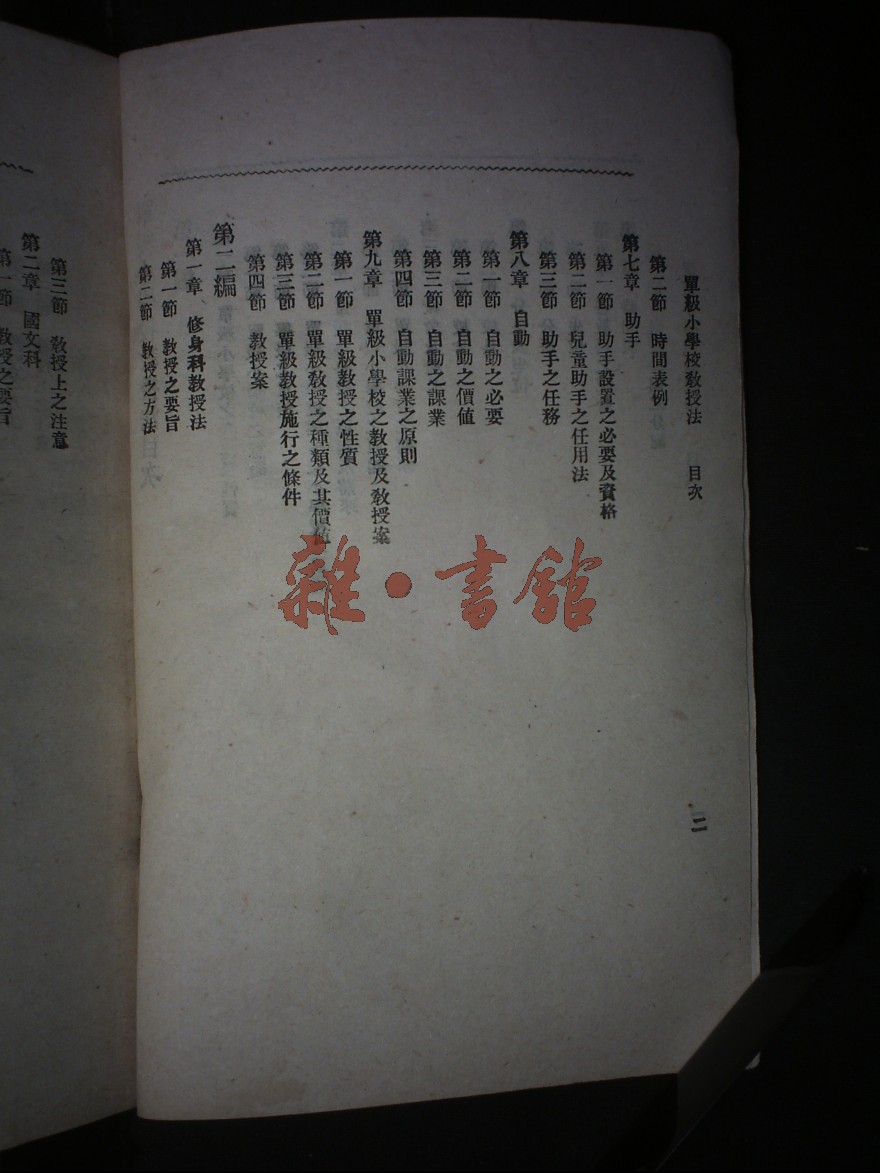 單級小學校敎授法 目次
第二節 時間表例
第七章 助手
第一節 助手設置之必要及資格
第二節 兒童助手之任用法
第三節 助手之任務
第八章 自動
第一節 自動之必要
第二節 自動之價值
第三節 自動之課業
第四節 自動課業之原則
第九章 單級小學校之敎授及敎授案
第一節 單級敎授之性質
第二節 單級敎授之種類及其價值
第三節 單級敎授施行之條件
第四節 敎授案
第二編
第一章 修身科敎授法
第一節 敎授之要旨
第二節 敎授之方法
二
第三節 敎授上之注意
第二章 國文科
第一節 敎授之要旨
雜·書館